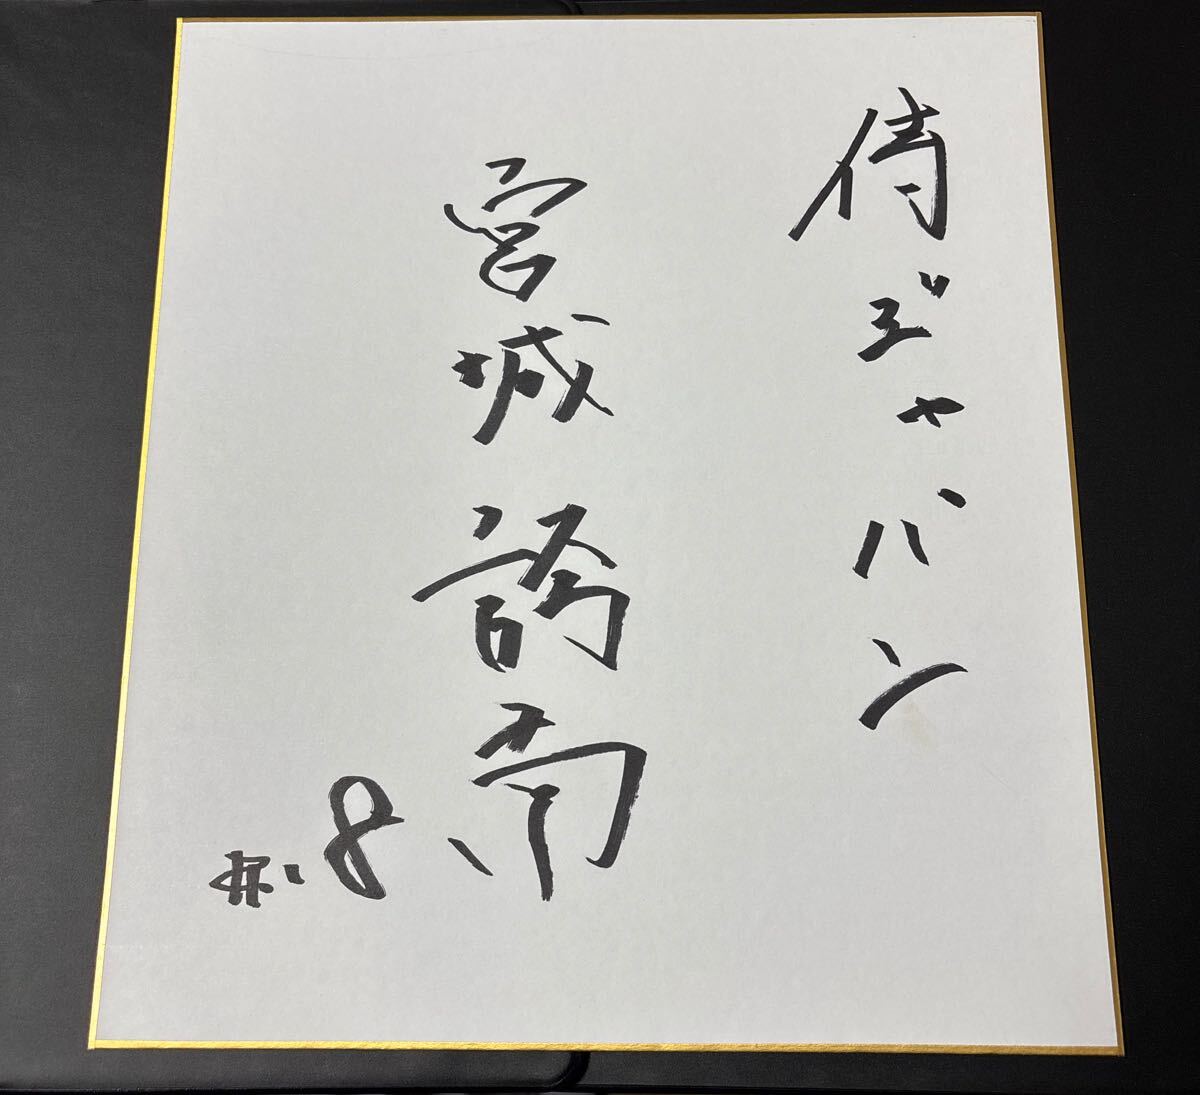 侍ジャパン
宮城誇南
#18